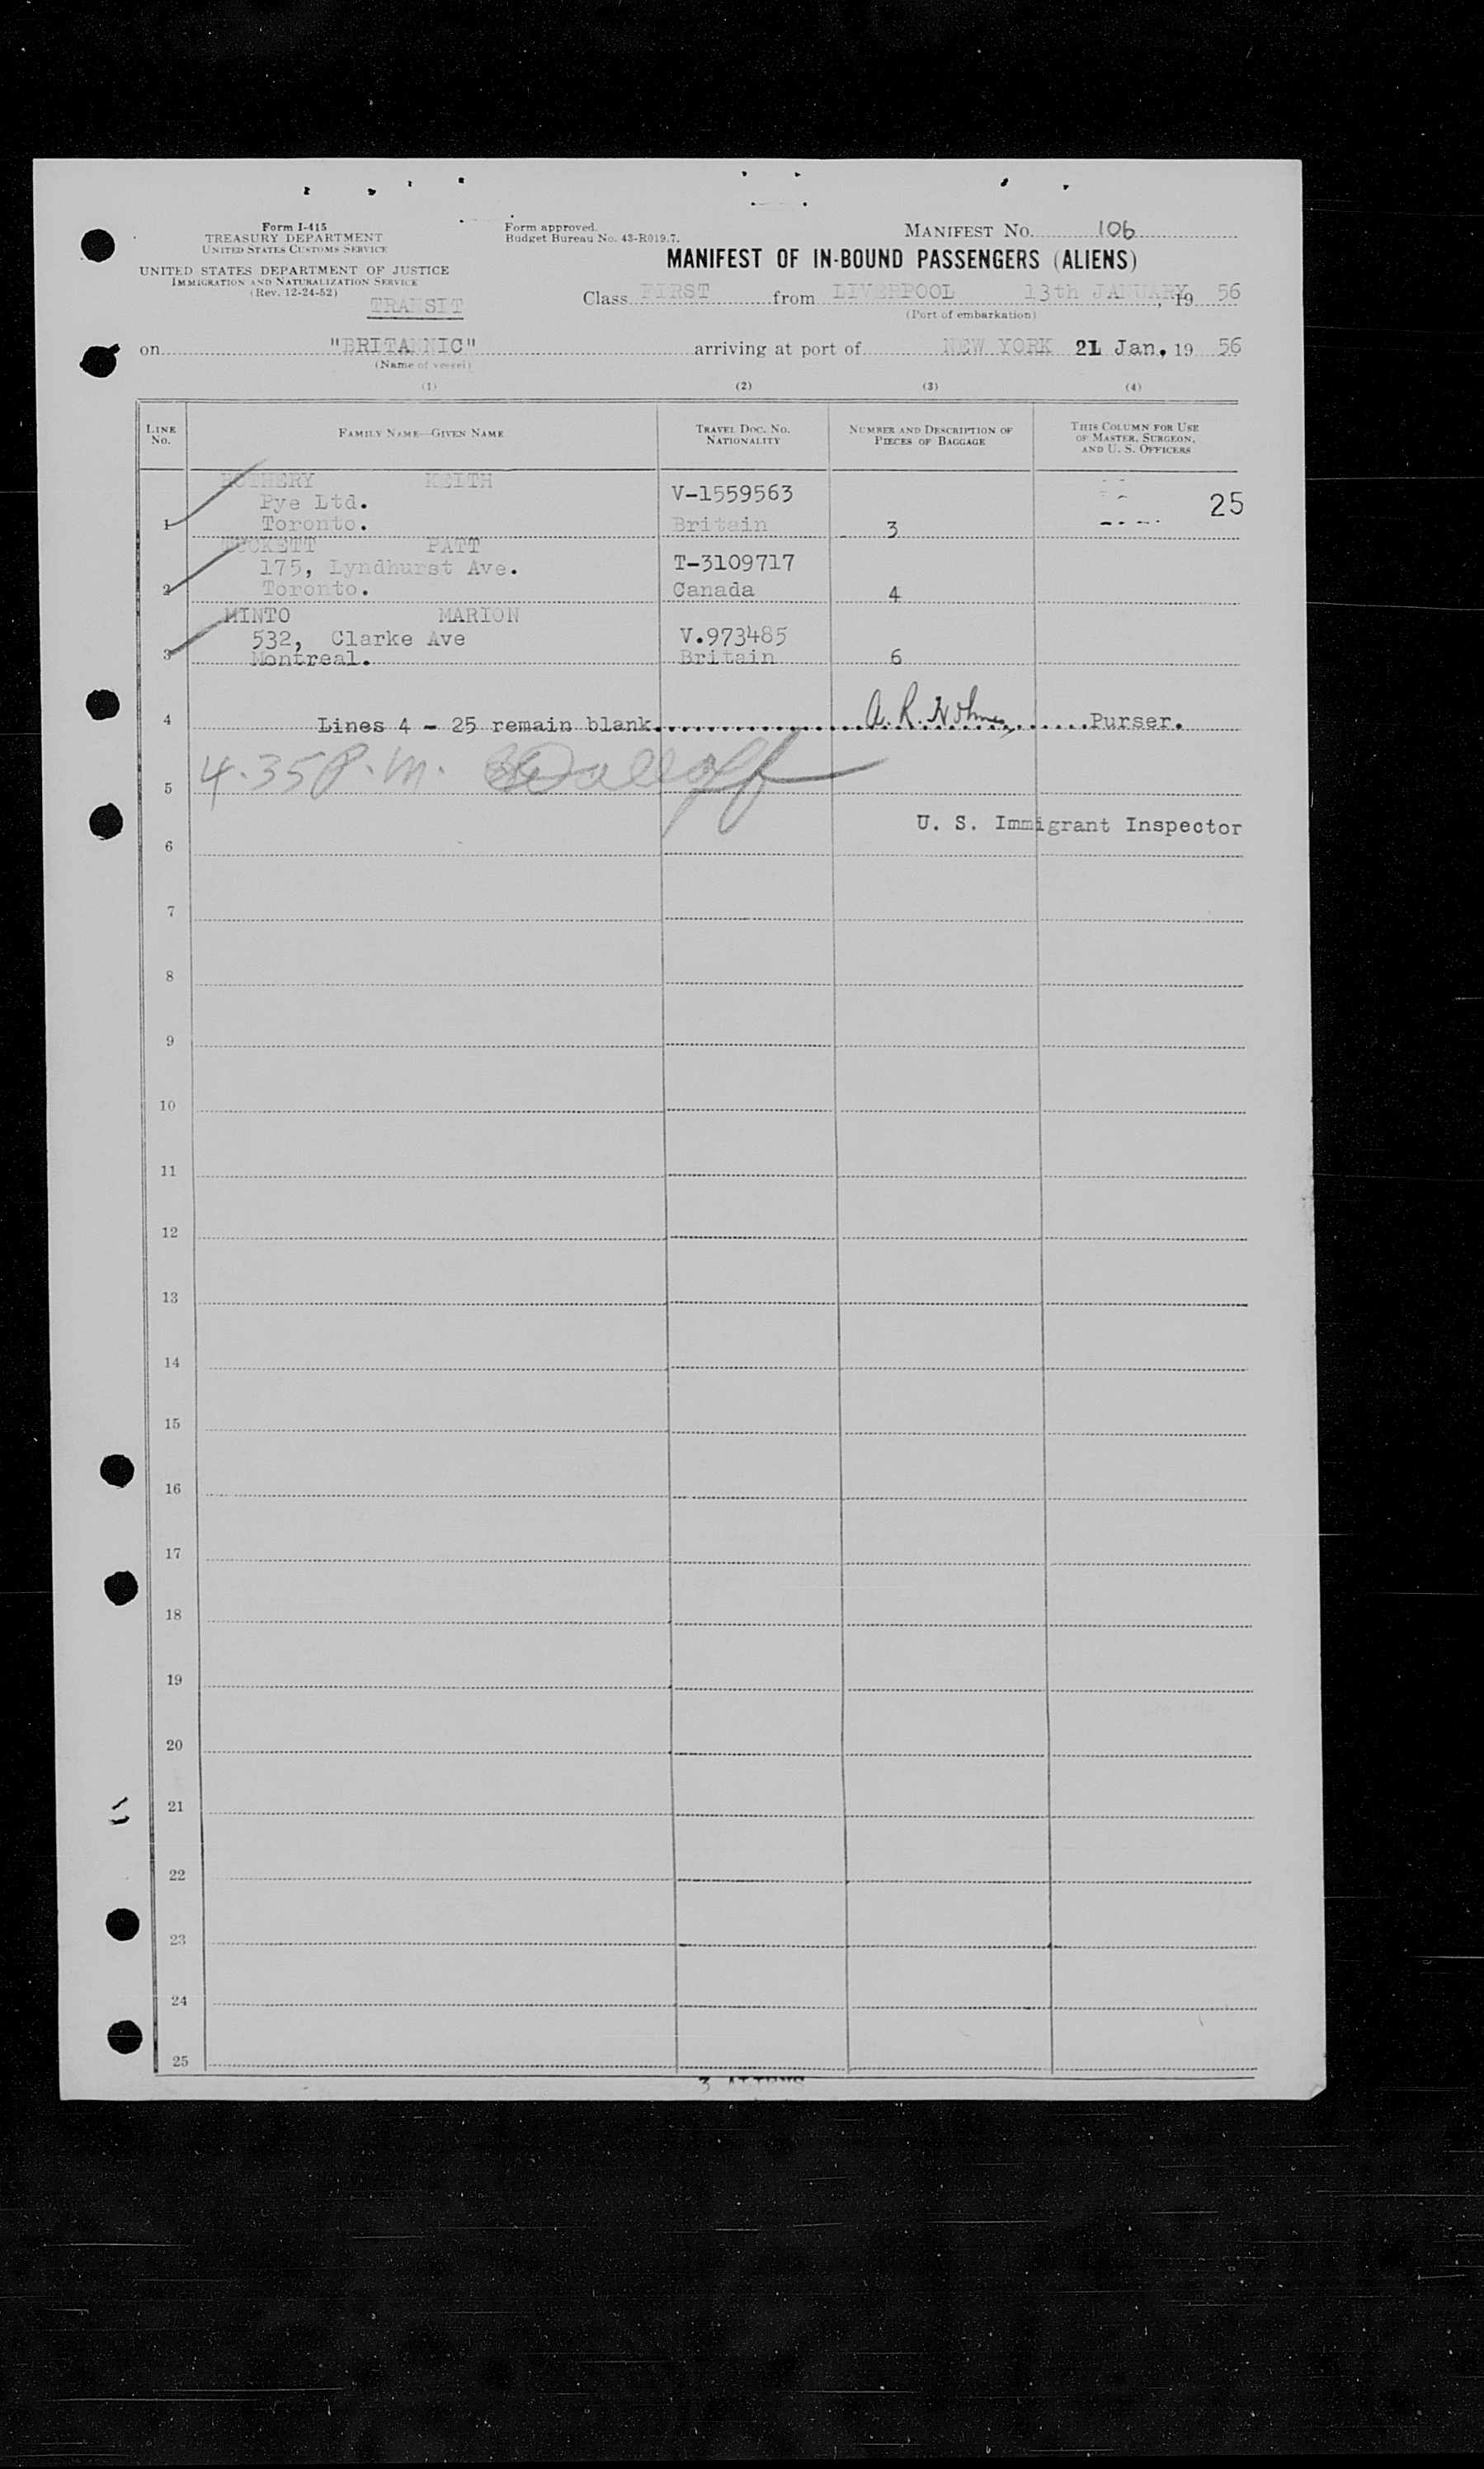 Form I-415
TREASURY DEPARTMENT
UNITED STATES CUSTOMS SERVICE
UNITED STATES DEPARTMENT OF JUSTICE
IMMIGRATION AND NATURALIZATION SERVICE
(Rev. 12-24-52)
TRANSIT
Form approved.
Budget Bureau No. 43-R019.7.
MANIFEST No. 106
MANIFEST OF IN-BOUND PASSENGERS (ALIENS)
Class FIRST from LIVERPOOL 13th JANUARY, 19 56
(Port of embarkation)
on "BRITANNIC" arriving at port of NEW YORK 21 Jan. 19 56
(Name of vessel)
(1) (2) (3) (4)
LINE No. FAMILY NAME—GIVEN NAME TRAVEL DOC. NO. NATIONALITY NUMBER AND DESCRIPTION OF PIECES OF BAGGAGE THIS COLUMN FOR USE OF MASTER, SURGEON, AND U. S. OFFICERS
KEITH
Pye Ltd. V-1559563 25
1 Toronto. Britain 3
PATT
175, Lyndhurst Ave. T-3109717
2 Toronto. Canada 4
MINTO MARION
532, Clarke Ave V.973485
3 Montreal. Britain 6
4 Lines 4 - 25 remain blank A. R. Purser.
4.35 P.m.
5
U. S. Immigrant Inspector
6
7
8
9
10
11
12
13
14
15
16
17
18
19
20
21
22
23
24
25